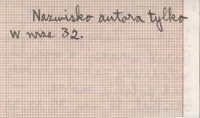 Nazwisko autora tylko
w nrze 32.